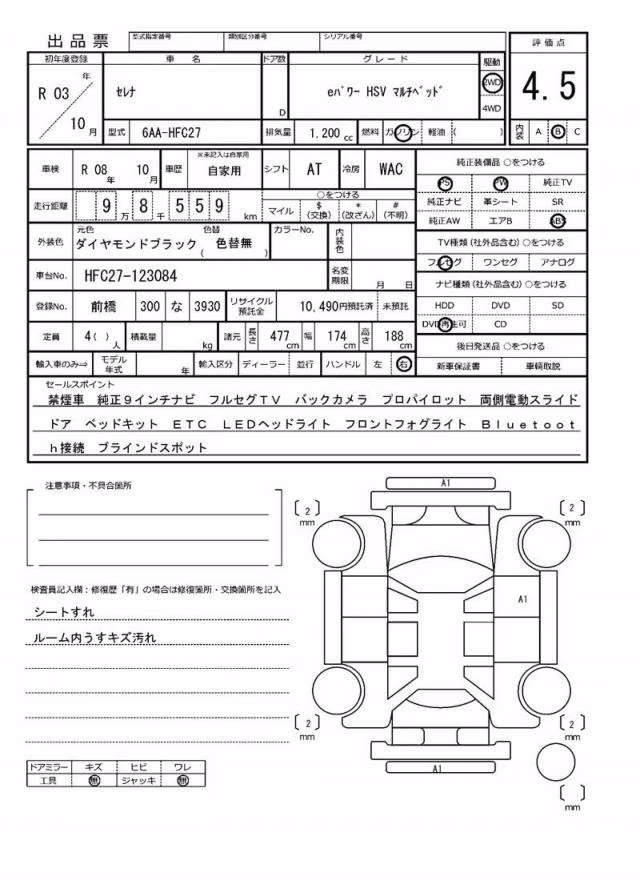 出品票 型式指定番号 類別区分番号 シリアル番号
初年度登録 車名 ドア数 グレード 駆動 評価点
R 03 年 セレナ D eパワー HSV マルチベッド 2WD 4WD 4.5
10 月 型式 6AA-HFC27 排気量 1.200 cc 燃料 ガソリン 軽油 ( ) 内装 A B C
車検 R 08 年 10 月 車歴 ※未記入は自家用 自家用 シフト AT 冷房 WAC
純正装備品 ○をつける
PS PW 純正TV
純正ナビ 革シート SR
純正AW エアB ABS
走行距離 9 万 8 千 559 km
○をつける
マイル $ (交換) * (改ざん) # (不明)
外装色 元色 ダイヤモンドブラック 色替 ( 色替無 ) カラーNo. 内装色
TV種類 (社外品含む) ○をつける
フルセグ ワンセグ アナログ
車台No. HFC27-123084 名変期限 月 日
ナビ種類 (社外品含む) ○をつける
HDD DVD SD
DVD再生可 CD
登録No. 前橋 300 な 3930 リサイクル預託金 10,490円預託済 未預託
定員 4 ( ) 人 積載量 kg 諸元 長さ 477 cm 幅 174 cm 高さ 188 cm
後日発送品 ○をつける
新車保証書 車輌取説
輸入車のみ⇒ モデル年式 年 輸入区分 ディーラー 並行 ハンドル 左 右
セールスポイント
禁煙車 純正9インチナビ フルセグTV バックカメラ プロパイロット 両側電動スライド
ドア ベッドキット ETC LEDヘッドライト フロントフォグライト Bluetoot
h接続 ブラインドスポット
注意事項・不具合箇所
検査員記入欄：修復歴「有」の場合は修復箇所・交換箇所を記入
シートすれ
ルーム内うすキズ汚れ
ドアミラー キズ ヒビ ワレ
工具 無 ジャッキ 無
A1
2 mm
2 mm
A1
2 mm
2 mm
A1
mm